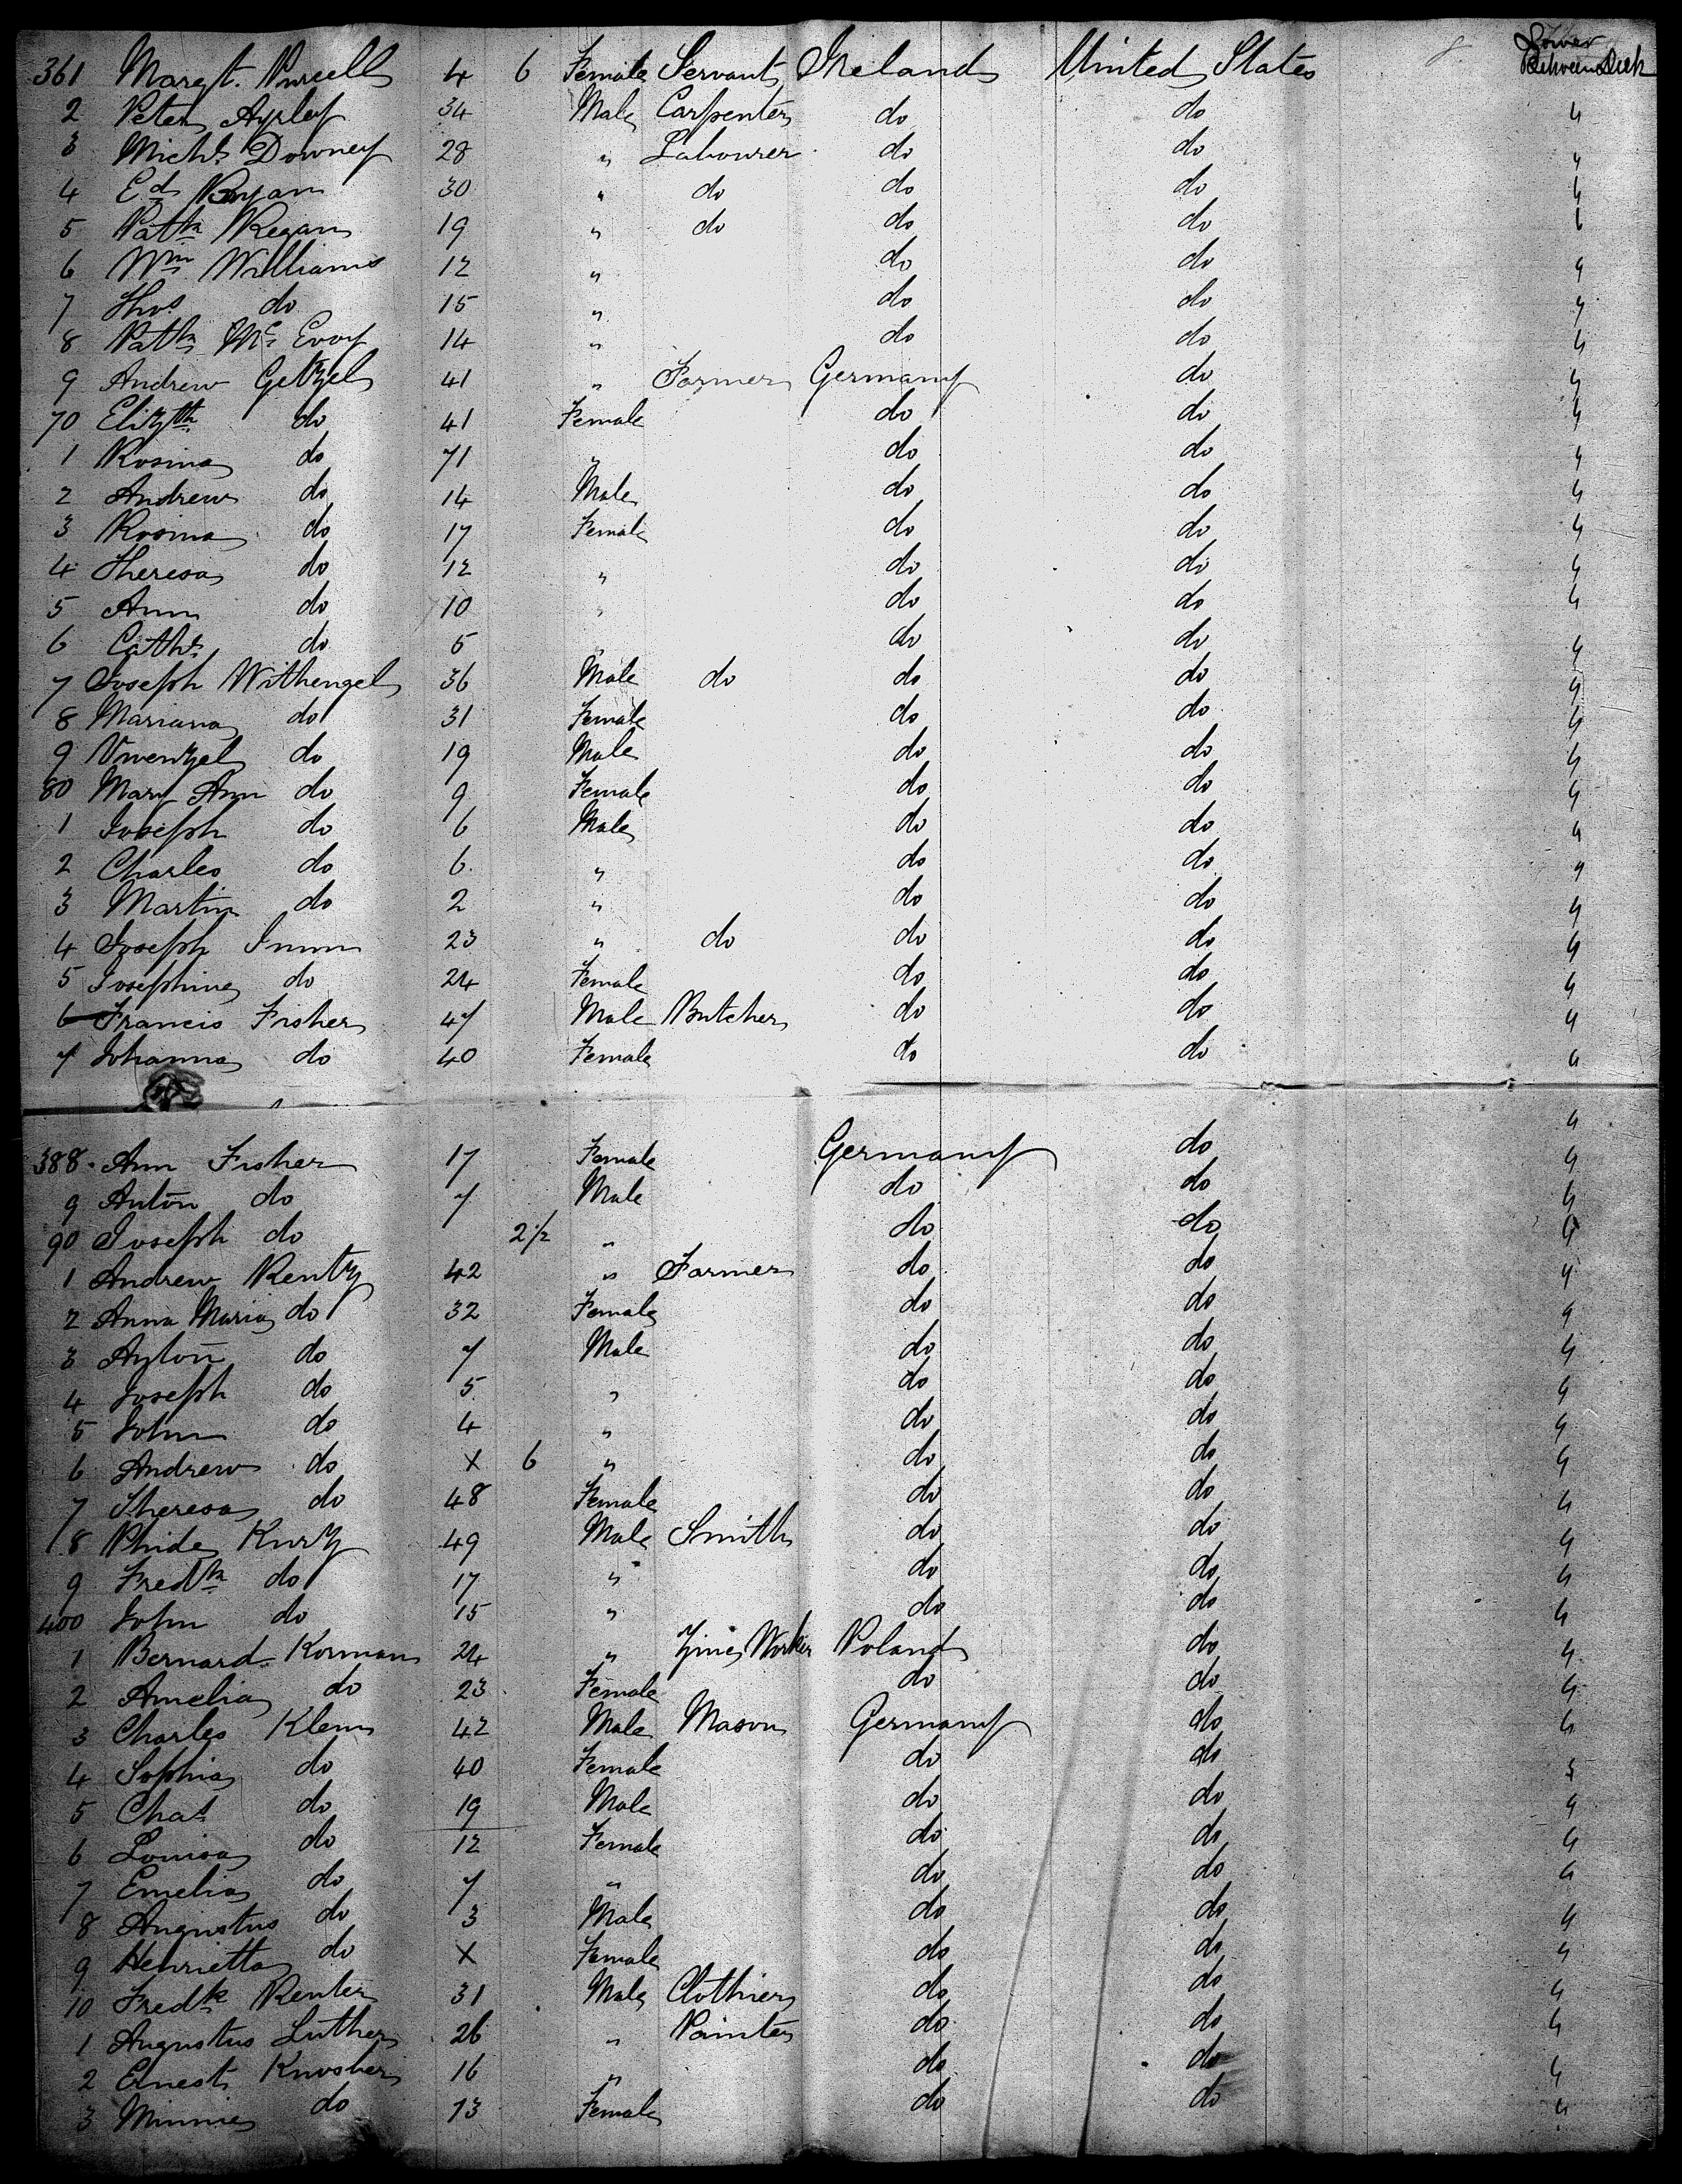 361 Margt. Purcell 4 6 Female Servant Ireland United States Lower Between Deck
2 Peter 34 Male Carpenter do do "
3 Michl Downey 28 " Labourer do do "
4 Ed Ryan 30 " do do do "
5 Patk Regan 19 " do do do "
6 Wm Williams 12 " do do "
7 Thos do 15 " do do "
8 Patk Mc Evoy 14 " do do "
9 Andrew Getzel 41 " Farmer Germany do "
70 Elizth do 41 Female do do "
1 Rosina do 71 " do do "
2 Andrew do 14 Male do do "
3 Rosina do 17 Female do do "
4 Theresa do 12 " do do "
5 Ann do 10 " do do "
6 Cathe do 5 " do do "
7 Joseph Withengel 36 Male do do do "
8 Mariana do 31 Female do do "
9 do 19 Male do do "
80 Mary Ann do 9 Female do do "
1 Joseph do 6 Male do do "
2 Charles do 6 " do do "
3 Martin do 2 " do do "
4 Joseph 23 " do do do "
5 Josephine do 24 Female do do "
6 Francis Fisher 47 Male Butcher do do "
7 Johanna do 40 Female do do "
"
388 Ann Fisher 17 Female Germany do "
9 Anton do 7 Male do do "
90 Joseph do 2 1/2 " do do "
1 Andrew Rentz 42 " Farmer do do "
2 Anna Maria do 32 Female do do "
3 Anton do 7 Male do do "
4 Joseph do 5 " do do "
5 John do 4 " do do "
6 Andrew do X 6 " do do "
7 Theresa do 48 Female do do "
8 Kurz 49 Male Smith do do "
9 Fredk do 17 " do do "
400 John do 15 " do do "
1 Bernard Korman 24 " Zinc Worker Poland do "
2 Amelia do 23 Female do do "
3 Charles Klem 42 Male Mason Germany do "
4 Sophia do 40 Female do do "
5 Chas do 19 Male do do "
6 Louisa do 12 Female do do "
7 Emelia do 7 " do do "
8 Augustus do 3 Male do do "
9 Henrietta do X Female do do "
10 Fredk Renter 31 Male Clothier do do "
1 Augustus Luther 26 " Painter do do "
2 Ernest 16 " do do "
3 Minnie do 13 Female do do "